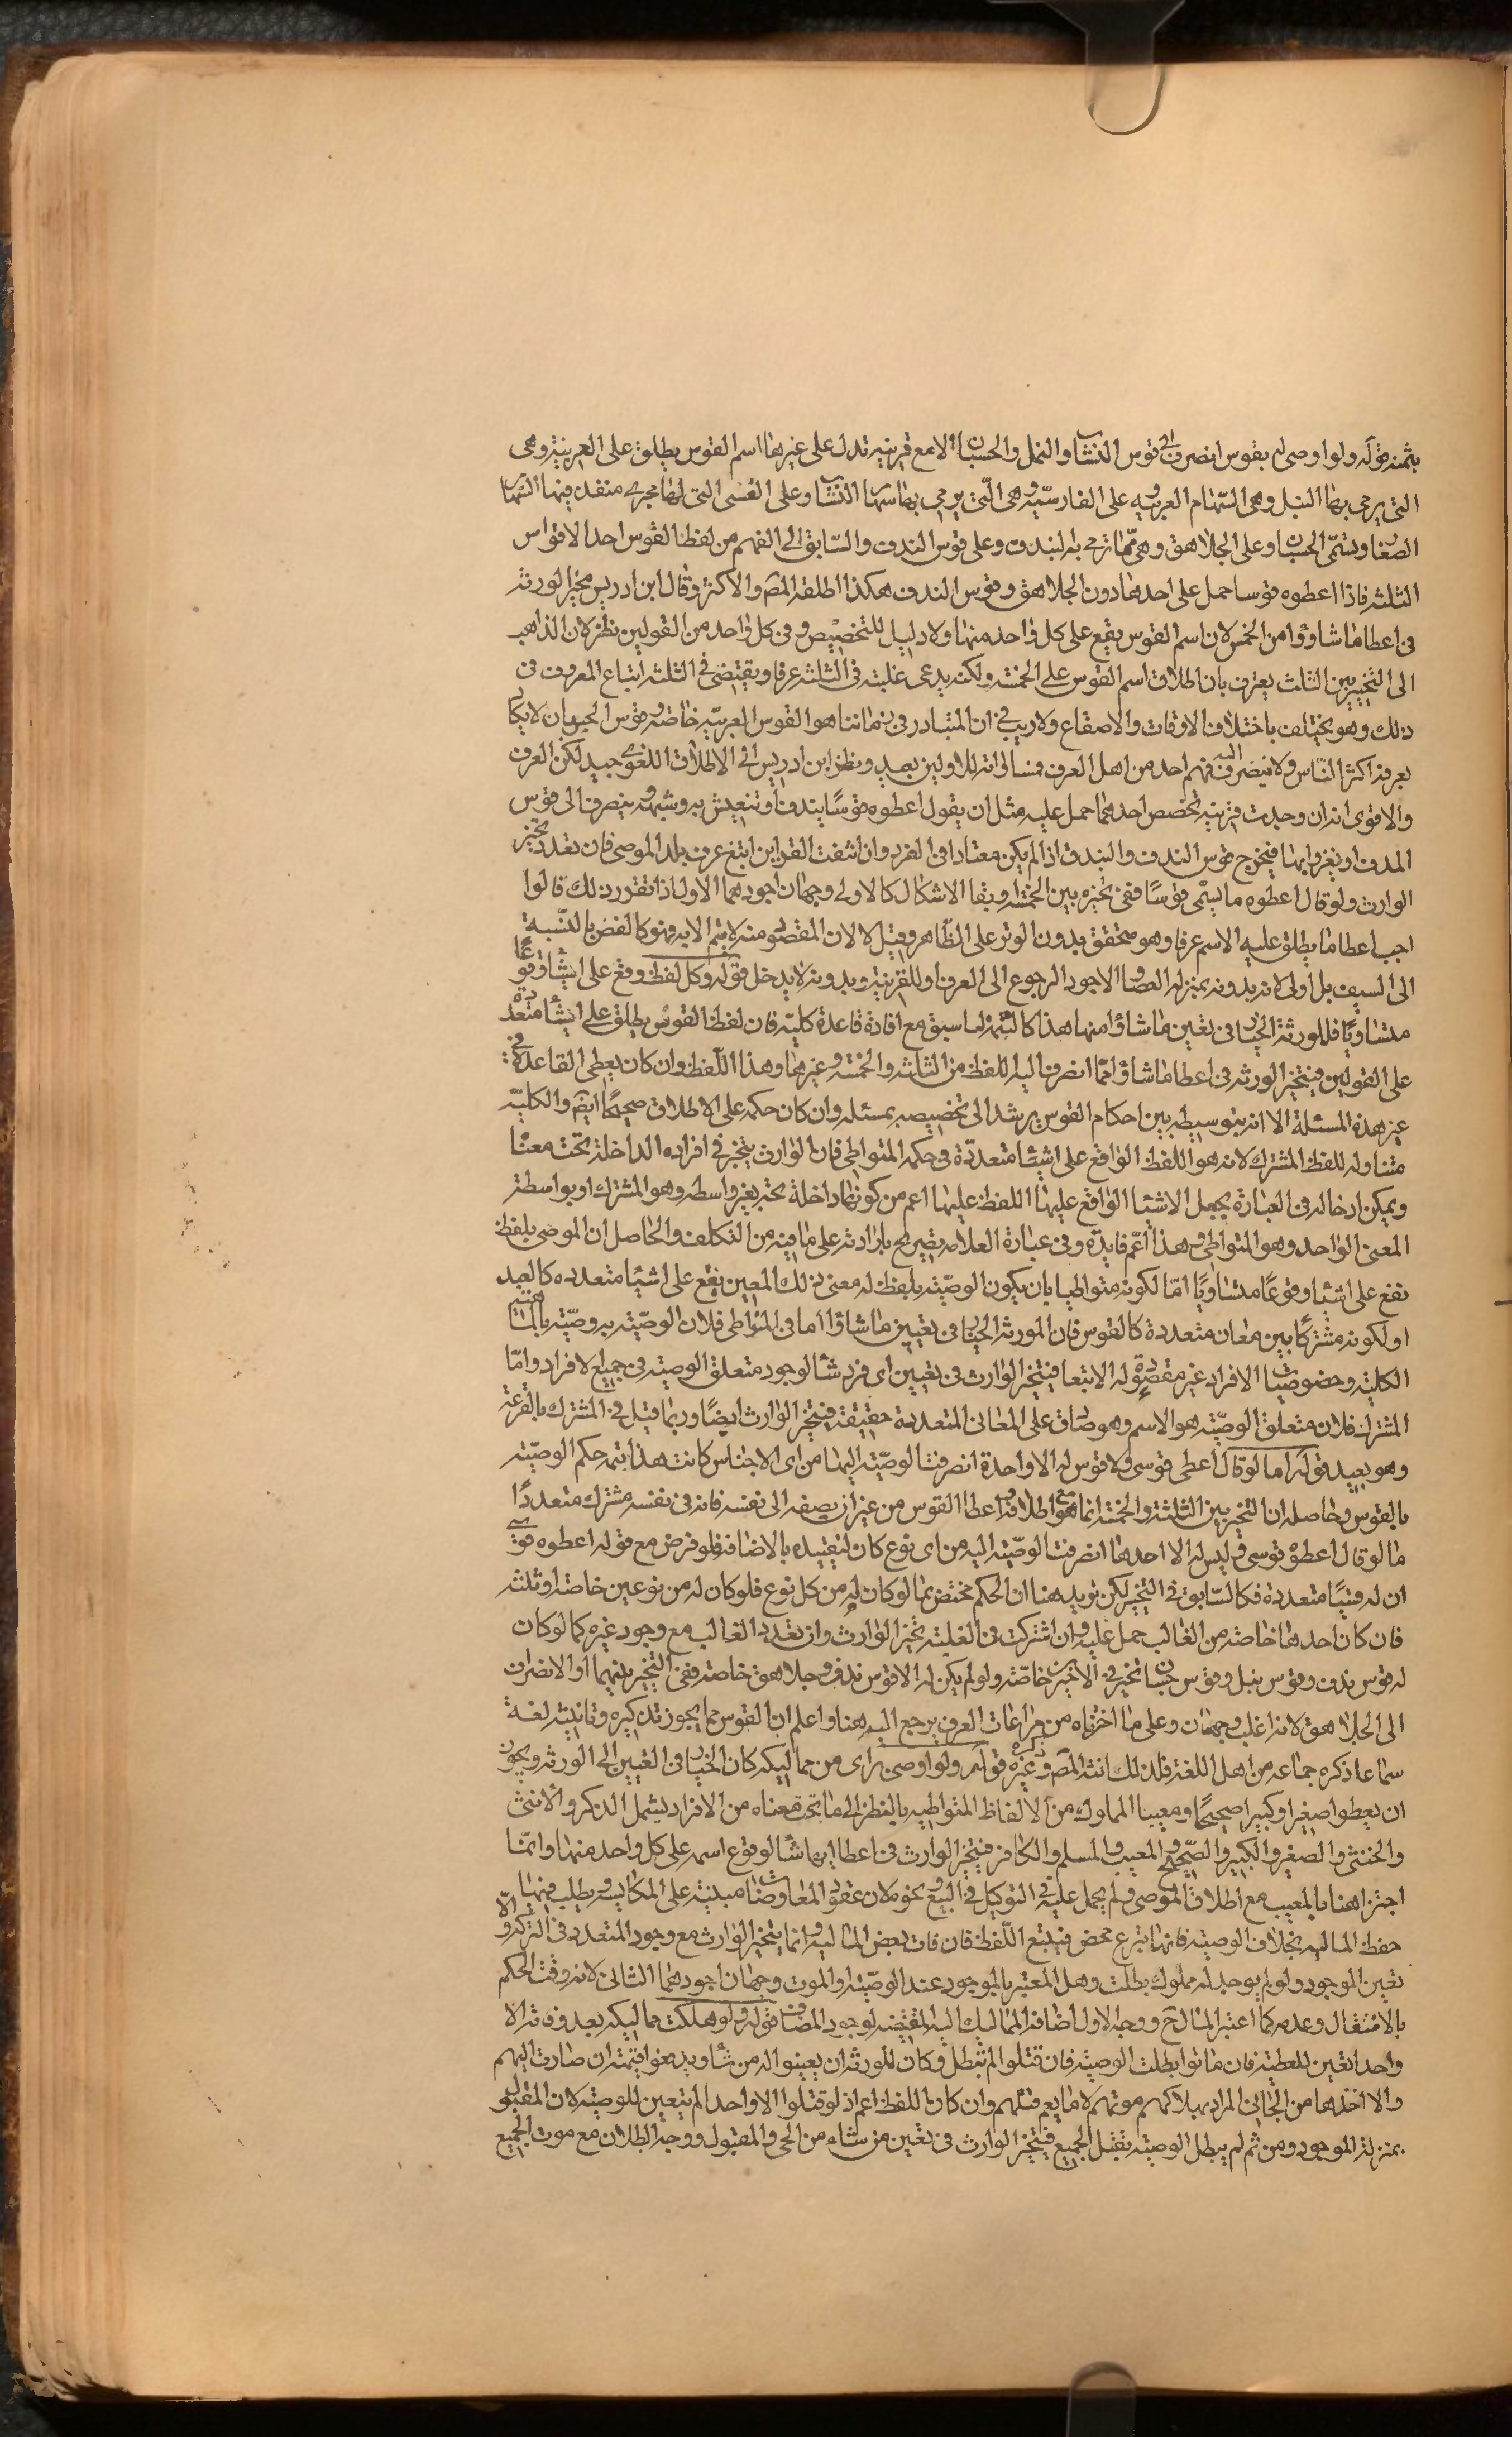 بثمنه قوله ولو اوصى له بقوس انصرف الى قوس النشاب والنبل والحسبان الا مع قرينة تدل على غيرها اسم القوس يطلق على العربية وهى
التى يرمى بها النبل وهى السهام العربية وعلى الفارسية وهى التى يرمى بها سهام النشاب وعلى القسى التى لها مجرى منفذ فيها السهام
الصغار وتسمى الحسبان وعلى الجلاهق وهى ما ترمى به البندق وعلى قوس الندف والسابق الى الفهم من لفظ القوس احد الاقواس
الثلثة فاذا اعطوه قوسا حمل على احدها دون الجلاهق وقوس الندف هكذا اطلقه المصَ والاكثر وقال ابن ادريس مخير الورثة
فى اعطا ما شاؤا من الخمس لان اسم القوس يقع على كل واحد منها ولا دليل للتخصيص وفى كل واحد من القولين نظر لان الذاهب
الى التخيير بين الثلث يعترف بان اطلاق اسم القوس على الخمسة ولكنه يدعى غلبته فى الثلثة عرفا ويقتضى فى الثلثة اتباع المعروف فى
ذلك وهو يختلف باختلاف الاوقات والاصقاع ولا ريب فى ان المتبادر فى زماننا هو القوس العربية خاصة وقوس الحسبان لا يكاد
يعرفه اكثر الناس ولا ينصرف اليه فهم احد من اهل العرف فمساواته للاولين بعيد ونظر ابن ادريس الى الاطلاق اللغوى جيد لكن العرف
والاقوى انه ان وجدت قرينة تخصص احدهما حمل عليه مثل ان يقول اعطوه قوسًا يندف او يتعيش به وشبهه ينصرف الى قوس
الندف او يغزوا بها فيخرج قوس الندف والبندق اذا لم يكن معتادا فى الغزو وان انتفت القراين اتبع عرف بلد الموصى فان تعدد تخير
الوارث ولو قال اعطوه ما يسمى قوسًا ففى تخيره بين الخمسة او بقا الاشكال كالاولى وجهان اجودهما الاول اذا تقرر ذلك قالوا
اجب اعطا ما يطلق عليه الاسم عرفا وهو متحقق بدون الوتر على الظاهر وقيل لا لان المقصود منه لا يتم الا به وهو كالغص بالنسبة
الى السيف بل اولى لانه بدونه بمنزلة العصا والاجود الرجوع الى العرف او للقرينة وبدونه لا يدخل قوله وكل لفظ وقع على اشيا وقوعًا
متساويًا فللورثة الخيار فى تعيين ما شاؤا منها هذا كالتتمة لما سبق مع افادة قاعدة كلية فان لفظ القوس يطلق على اشيا متعددة
على القولين فيتخير الورثة فى اعطا ما شاؤا مما انصرف اليه اللفظ من الثلثة والخمسة وغيرها وهذا اللفظ وان كان يعطى القاعدة فى
غير هذة المسئلة الا انه بتوسيطه بين احكام القوس يرشد الى تخصيصه بمسئلة وان كان حكمه على الاطلاق صحيحًا ايضَ والكلية
متناولة للفظ المشترك لانه هو اللفظ الواقع على اشيا متعددة فى حكمه المتواطى فان الوارث يتخير فى افراده الداخلة تحت معناه
ويمكن ادخاله فى العبارة بجعل الاشيا الواقع عليها اللفظ عليها اعم من كونها داخلة تحته بغير واسطة وهو المشترك او بواسطة
المعنى الواحد وهو المتواطى وهذا اعم فايدة وفى عبارة العلامة تصريح بارادته على ما فيه من التكلف والحاصل ان الموصى بلفظ
يقع على اشيا وقوعًا متساويًا اما لكونه متواطيا بان يكون الوصية بلفظ له معنى ذلك المعين يقع على اشيا متعدده كالعبد
او لكونه مشتركًا بين معان متعددة كالقوس فان للورثة الخيار فى تعيين ما شاؤا اما فى المتواطى فلان الوصية به وصية بالماهية
الكلية وخصوصيات الافراد غير مقصودة له الا تبعا فيتخير الوارث فى تعيين اى فرد شا لوجود متعلق الوصية فى جميع الافراد واما
المشترك فلان متعلق الوصية هو الاسم وهو صادق على المعانى المتعددة حقيقة فيتخير الوارث ايضًا وربما قيل فى المشترك بالقرعة
وهو بعيد قوله اما لو قال اعطى قوسى ولا قوس له الا واحدة انصرفت الوصية اليها من اى الاجناس كانت هذا تتمة حكم الوصية
بالقوس وحاصله ان التخير بين الثلثة والخمسة انما هو مع اطلاقه اعطا القوس من غير ان يضفه الى نفسه فانه فى نفسه مشترك متعددًا
ما لو قال اعطوه قوسى وليس له الا احدها انصرفت الوصية اليه من اى نوع كان لتقييده بالاضافة فلو فرض مع قوله اعطوه قوسى
ان له قسيًا متعددة فكالسابق فى التخير لكن نزيد هنا ان الحكم مختص بما لو كان له من كل نوع فلو كان له من نوعين خاصة او ثلثة
فان كان احدها خاصة من الغالب حمل عليه وان اشتركت فى الغلبة تخير الوارث وان تعدد الغالب مع وجود غيره كما لو كان
له قوس ندف وقوس نبل وقوس حسبان تخير فى الاخيرين خاصة ولو لم يكن له الا قوس ندف وجلاهق خاصة ففى التخير بينهما او الانصراف
الى الجلاهق لانه اغلب وجهان وعلى ما اخترناه من مراعات العرف يرجع اليه هنا واعلم ان القوس مما يجوز تذكيره وتانيثه لغة
سماعا ذكره جماعه من اهل اللغة فلذلك انثه المصَ وذكره غيره قوله ولو اوصى براى من مماليكه كان الخيار فى التعيين الى الورثة ويجوز
ان يعطوا صغيرا وكبيرا صحيحًا ومعيبا المملوك من الالفاظ المتواطية بالنظر الى ما تحت معناه من الافراد يشمل الذكر والانثى
والخنثى والصغير والكبير والصحيح والمعيب والمسلم والكافر فيتخير الوارث فى اعطا ايها شا لوقوع اسمه على كل واحد منها وانما
اجتزا هنا بالمعيب مع اطلاق الموصى ولم يحمل عليه فى التوكيل فى البيع ونحوه لان عقود المعاوضات مبنية على المكايسة ويطلب فيها
حفظ المالية بخلاف الوصية فانها تبرع محض فيتبع اللفظ فان فات بعض المالية وانما يتخير الوارث مع وجود المتعدد فى التركة والا
تعين الموجود ولو لم يوجد له مملوك بطلت وهل المعتبر بالموجود عند الوصية او الموت وجهان اجودهما الثانى لانه وقت الحكم
بالانتقال وعدمه كما اعتبر المال ح ووجه الاول اضافة المماليك اليه المقتضية لوجود المضاف قوله ولو هلكت مماليكه بعد وفاته الا
واحدا تعين للعطية فان ماتوا بطلت الوصية فان قتلوا لم تبطل وكان للورثة ان يعينوا له من شاؤا ويدفعوا قيمته ان صارت اليهم
والا اخذها من الجانى المراد بهلاكهم موتهم لا ما يعم قتلهم وان كان اللفظ اعم اذ لو قتلوا الا واحدا لم يتعين للوصية لان المقتول
بمنزلة الموجود ومن ثم لم يبطل الوصية بقتل الجميع فيتخير الوارث فى تعيين من شاء من الحى والمقتول ووجه البطلان مع موت الجميع